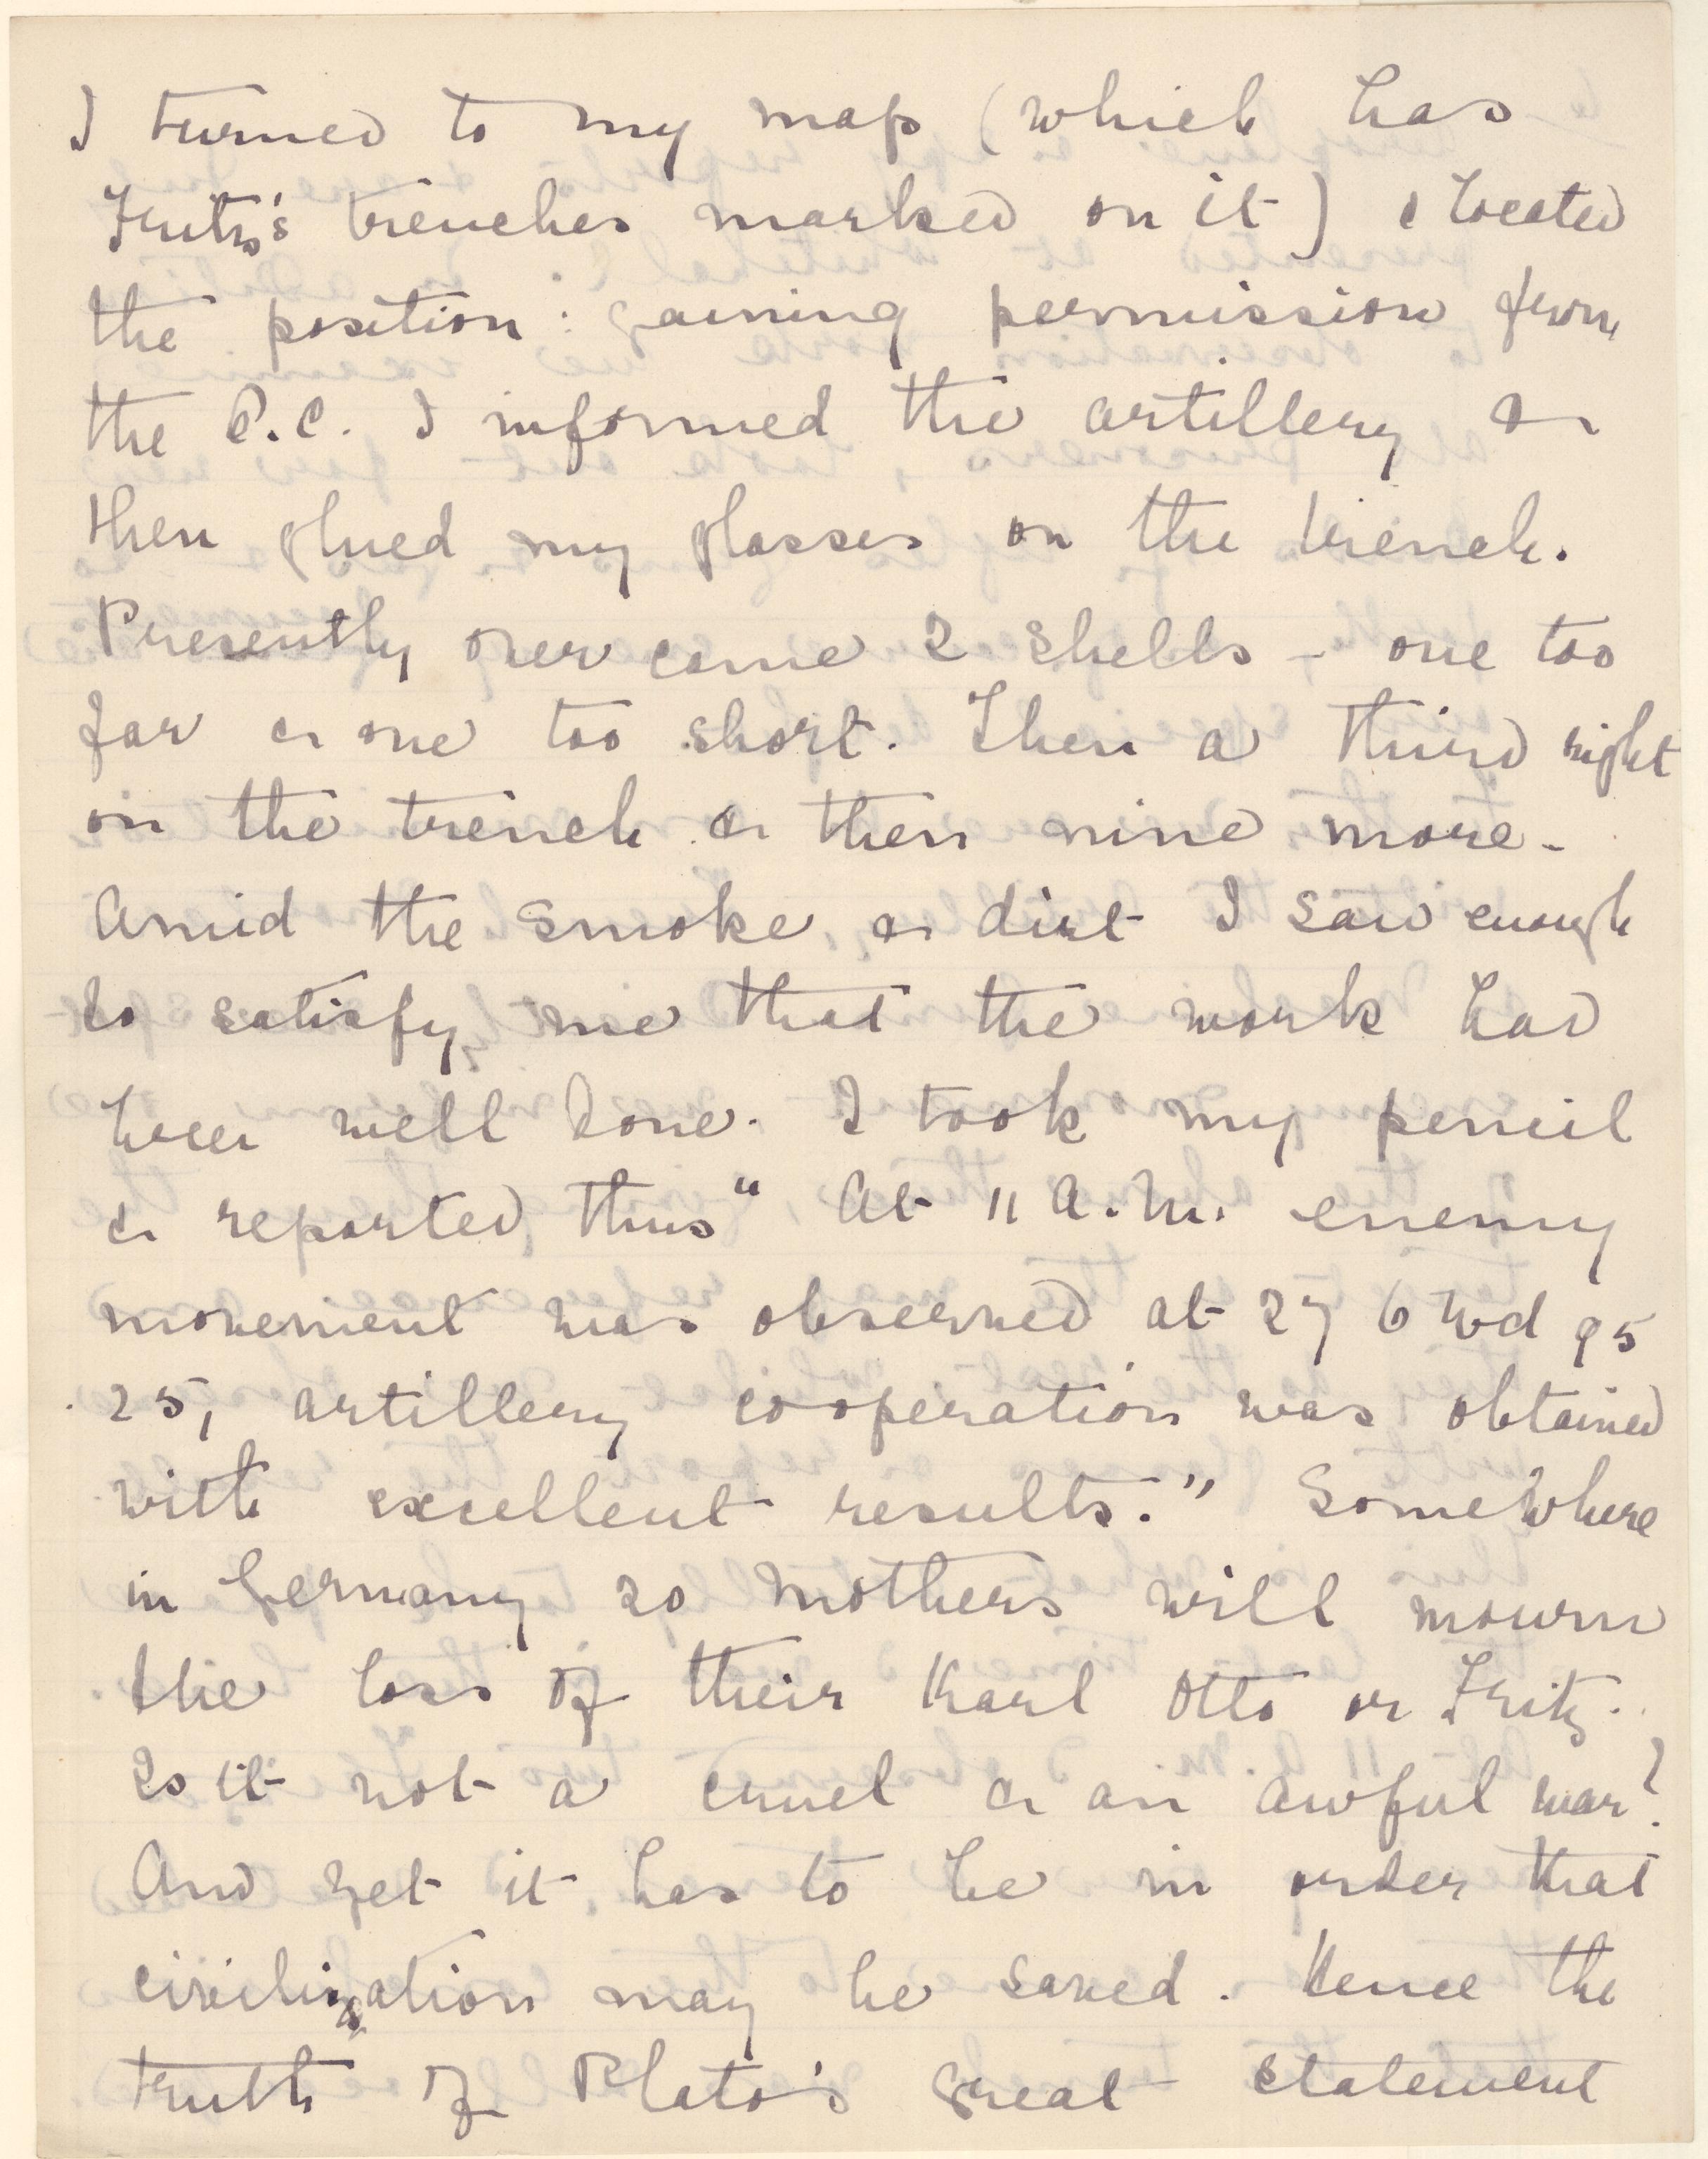 I turned to my map (which has
Fritz's trenches marked on it) & located
the position: gaining permission from
the O.C. I informed the artillery &
then glued my glasses on the trench.
Presently over came 2 shells - one too
far & one too short. Then a third right
on the trench & then nine more.
Amid the smoke & dirt I saw enough
to satisfy me that the work had
been well done. I took my pencil
& reported thus "At 11 A.M. enemy
movement was observed at 27 b 95
25, artillery cooperation was obtained
with excellent results." Somewhere
in Germany 20 mothers will mourn
the loss of their Karl Otto or Fritz.
Is it not a cruel & an awful war?
And yet it has to be in order that
civilization may be saved. Hence the
truth of Plato's great statement